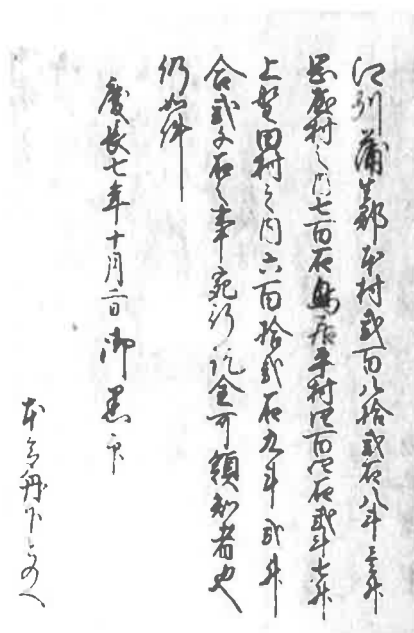 江刕蒲生郡本村弐百八拾弐石八斗升
岡屋村之内七百石鳥居平村四百四石弐斗七升
上野田村之内六百拾弐石九斗弐升
合弐千石之事宛行訖全可領知者也
仍如件
慶長七年十月二日御黒印
本多丹下とのへ